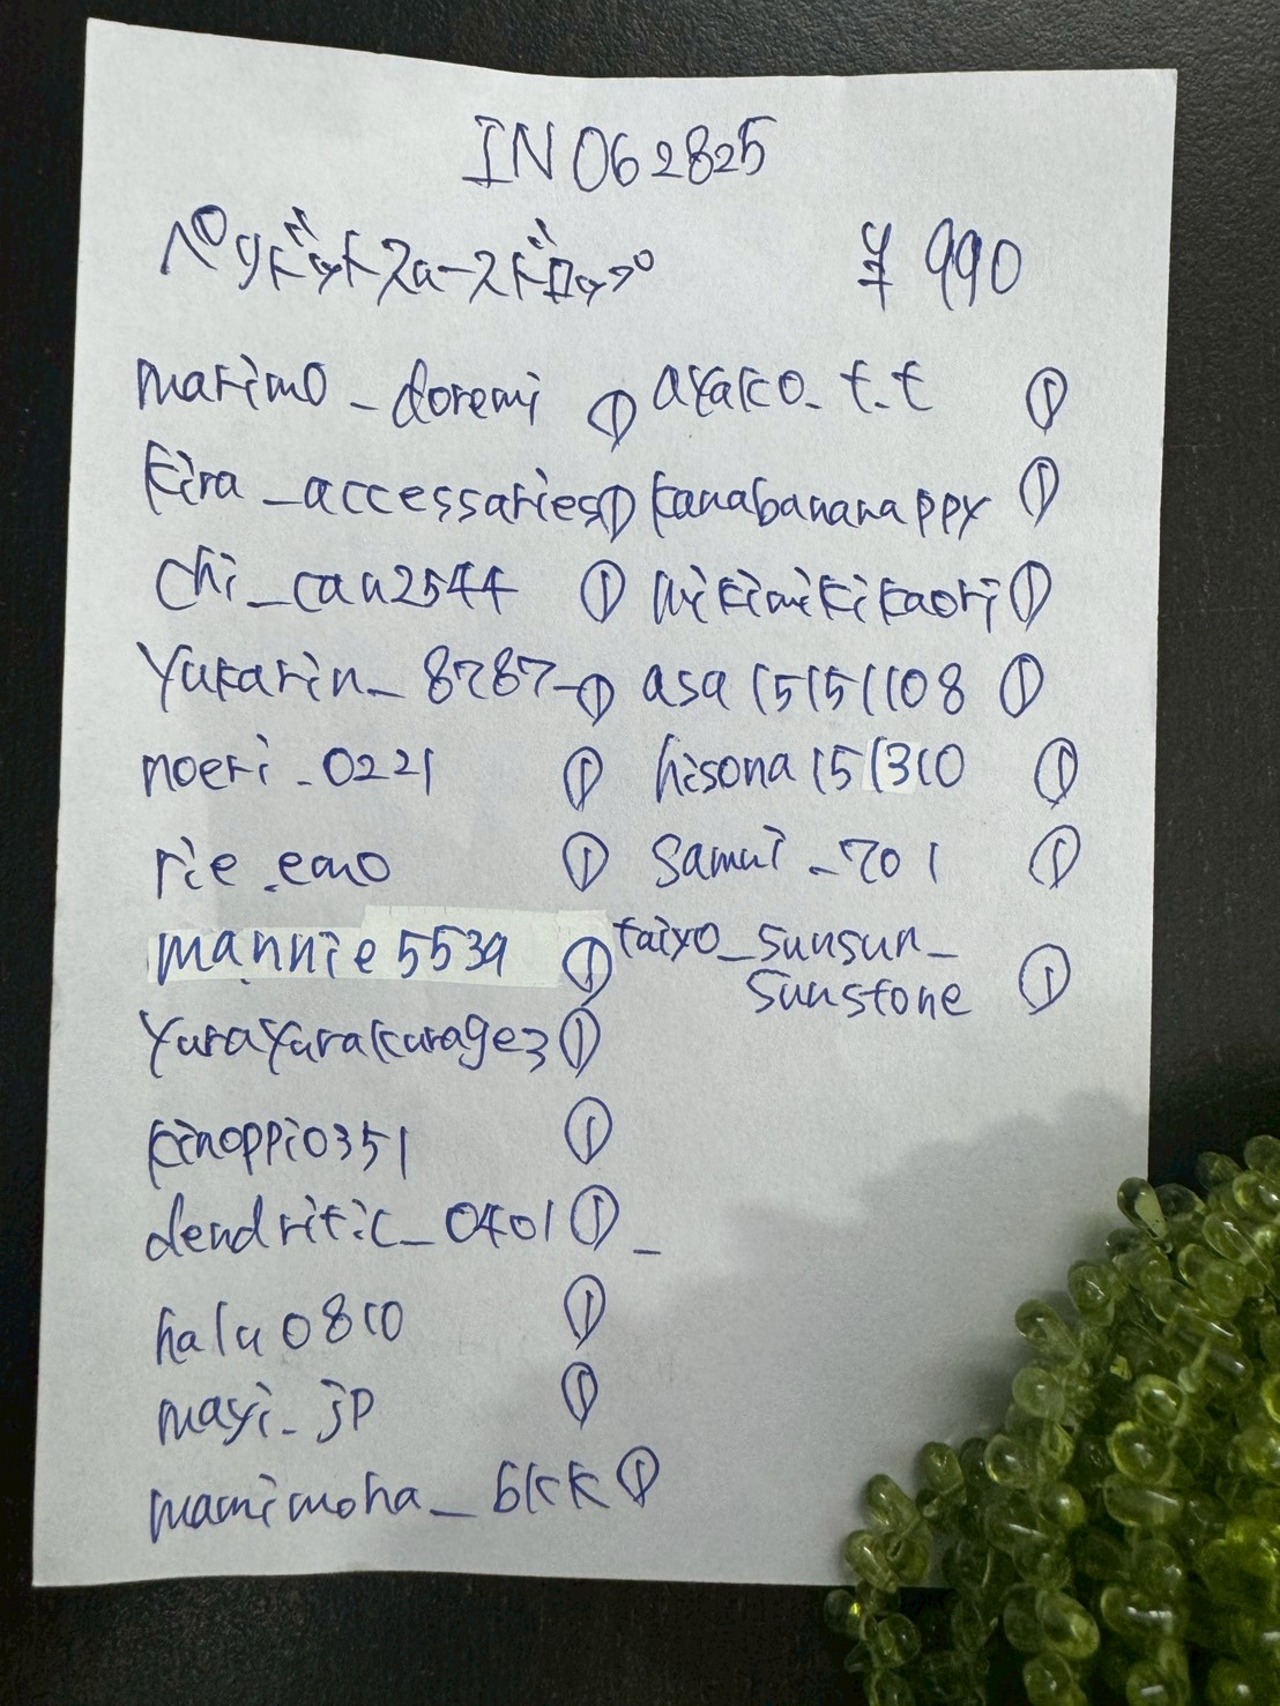 IN062825
ペリドットスムースドロップ ¥990
marimo_doremi ①
kira_accessaries ①
chi_can2544 ①
yukarin_8787_ ①
noeri_0221 ①
rie.emo ①
mannie5539 ①
yurayurakurage3 ①
kinoppi0351 ①
dendritic_0401 ① _
halu0810 ①
mayi_jp ①
mamimoha_bkk ①
ayako_t.t ①
kanabananappy ①
mikimikikaori ①
asa15151108 ①
hisona151310 ①
samui_701 ①
taiyo_sunsun_
sunstone ①